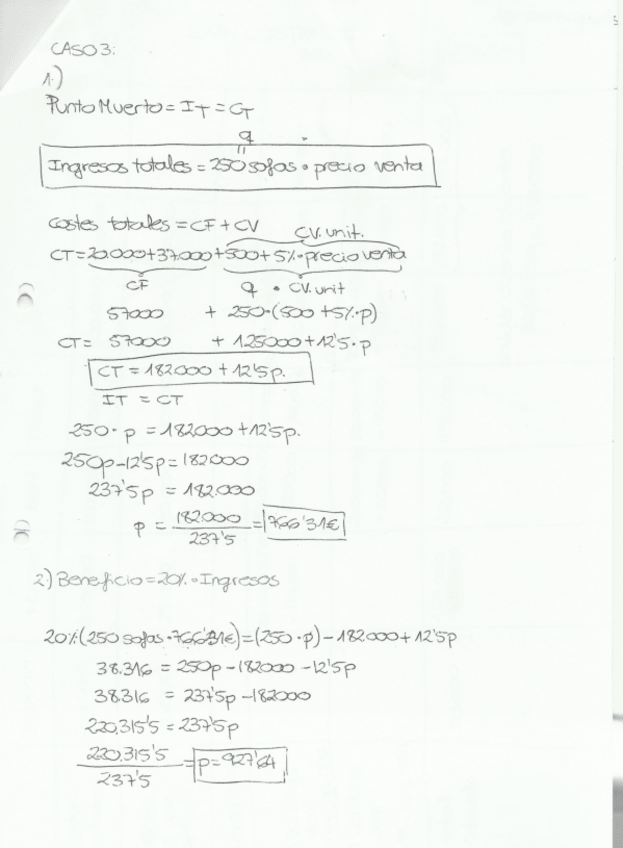 CASO 3:
1.)
Punto Muerto = IT = CT
q
"
Ingresos totales = 250 sofas • precio venta
Costes totales = CF + CV
CV. unit.
CT = 20.000 + 37.000 + 500 + 5% • precio venta
CF q • CV. unit
57000 + 250 • (500 + 5% • p)
CT = 57000 + 125000 + 12'5 • p
CT = 182000 + 12'5 p.
IT = CT
250 • p = 182000 + 12'5 p.
250p - 12'5p = 182000
237'5 p = 182.000
p = 182.000 / 237'5 = 766'31€
2) Beneficio = 20% • Ingresos
20% (250 sofas • 766'31€) = (250 • p) - 182000 + 12'5p
38.316 = 250p - 182000 - 12'5p
38.316 = 237'5p - 182000
220.315'5 = 237'5p
220.315'5 / 237'5 = p = 927'64